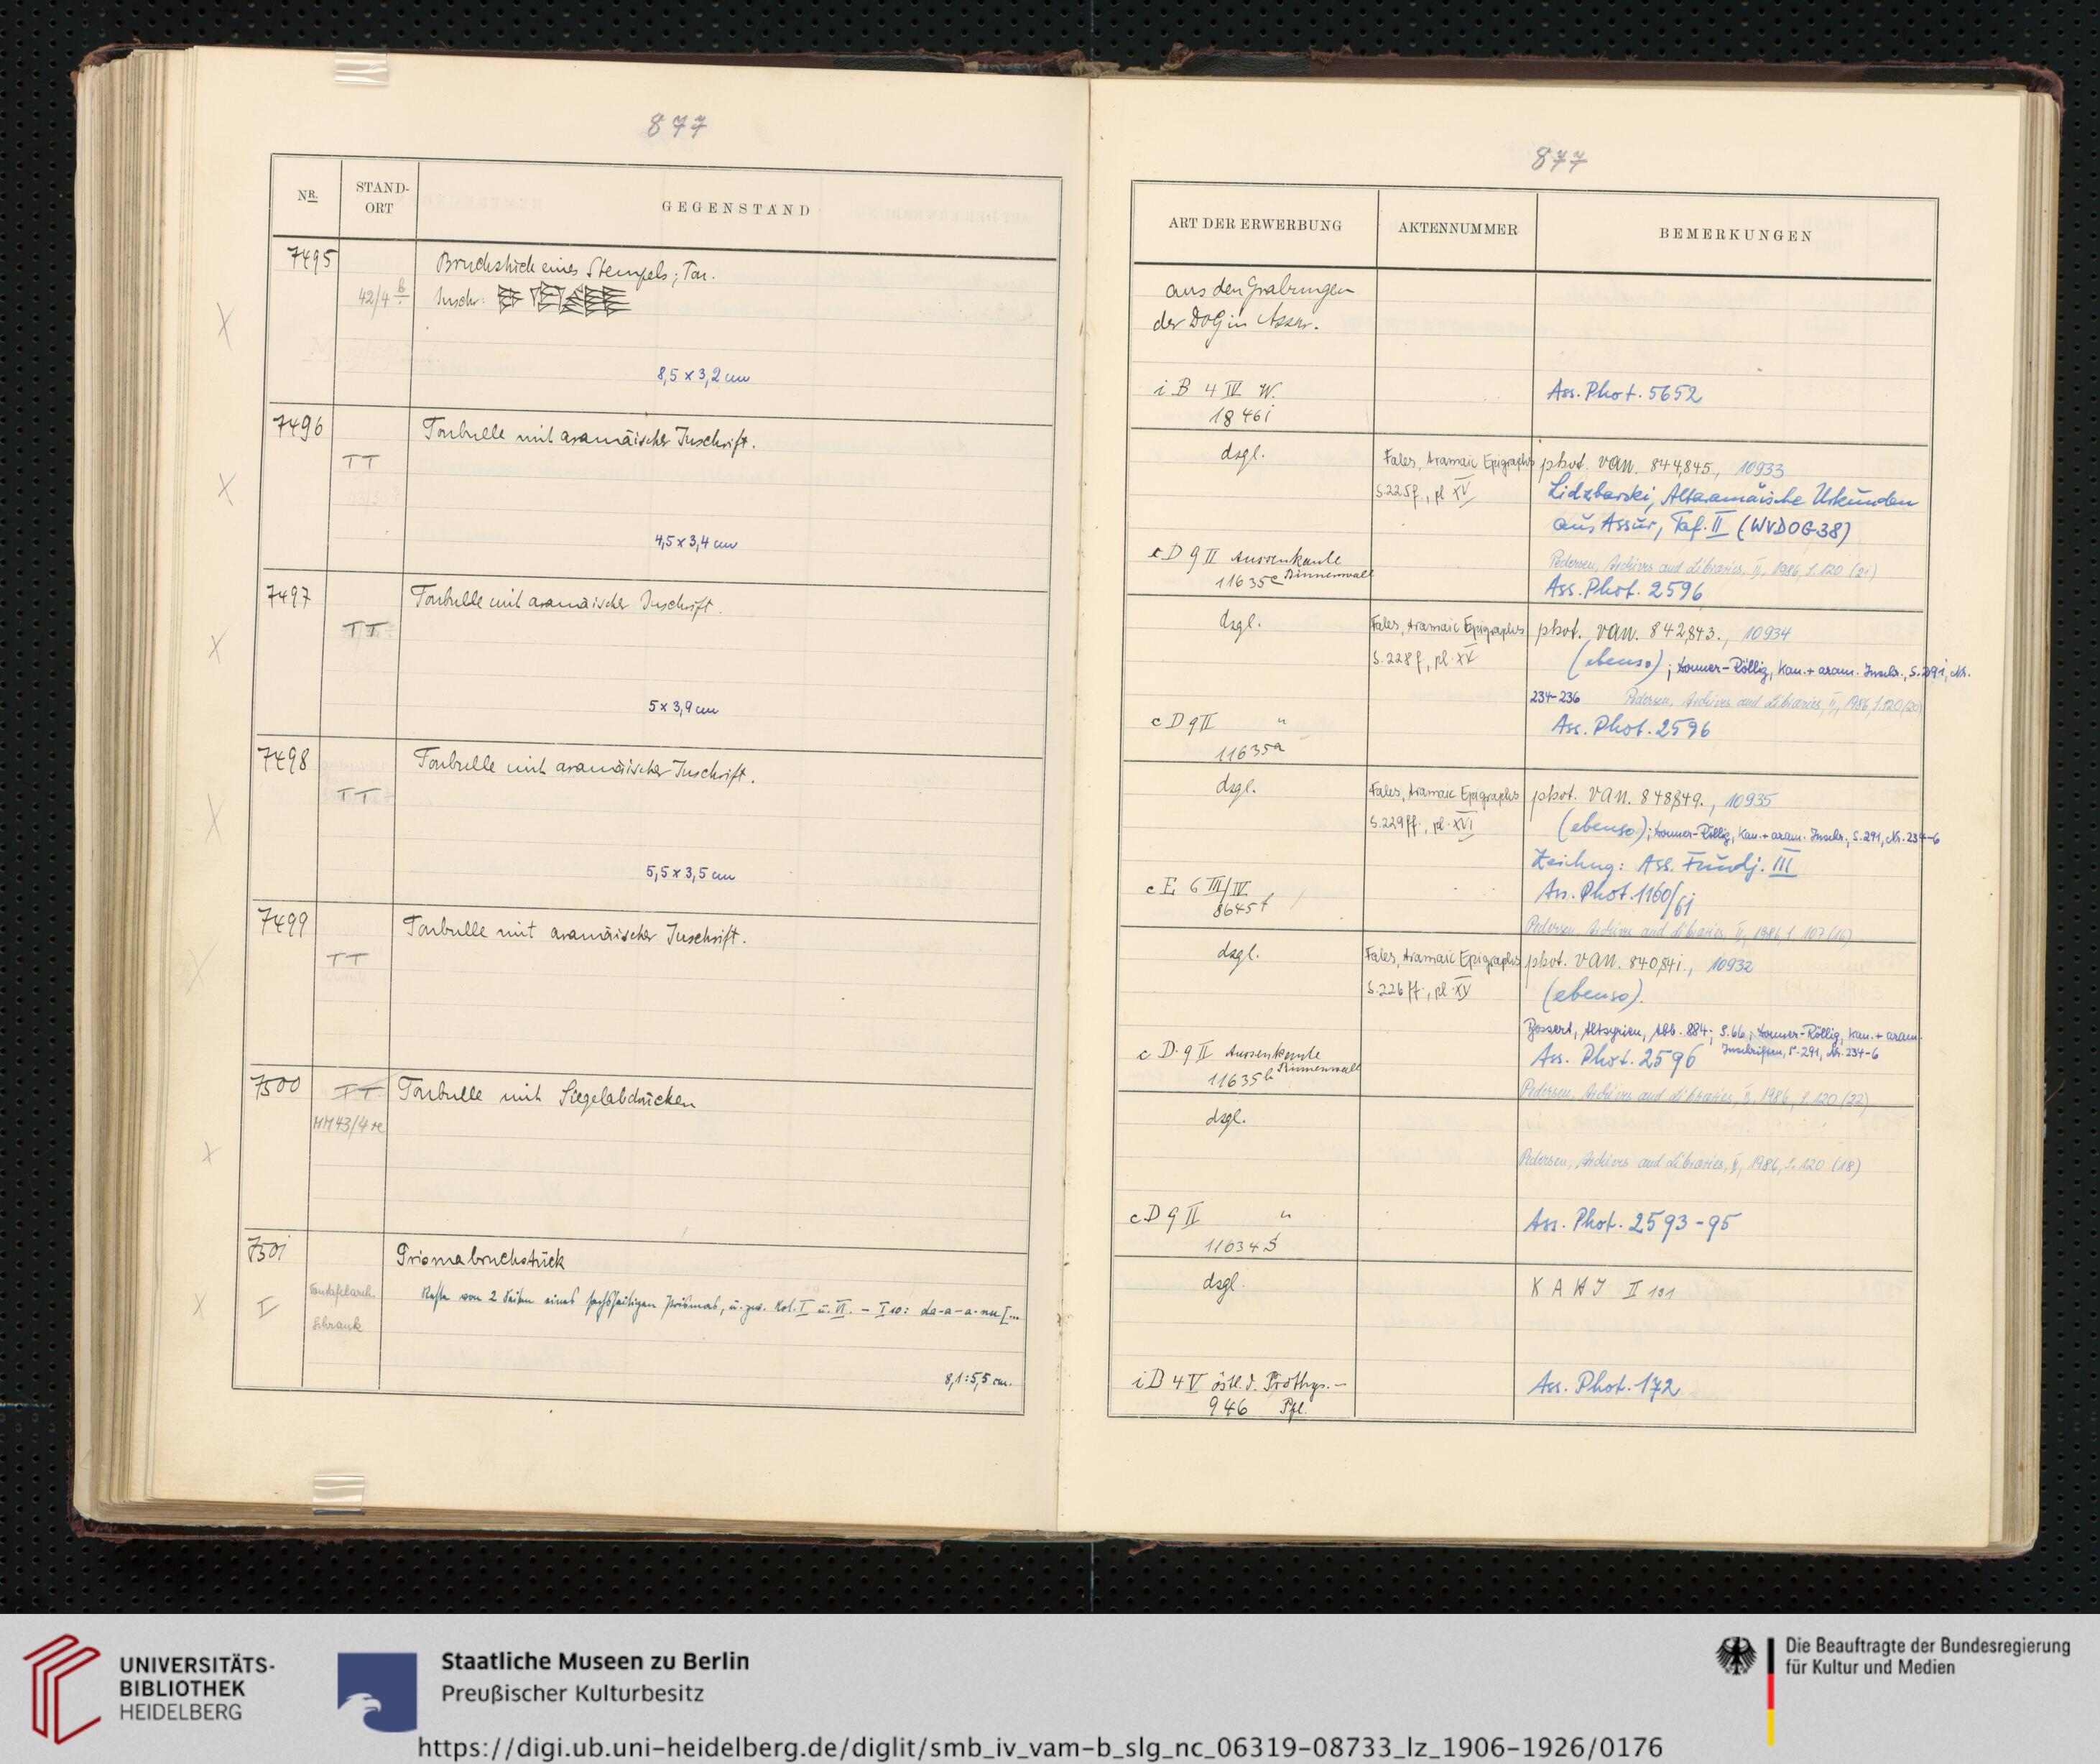 877
NR.
STAND-
ORT
GEGENSTAND
7495
42/4 b
Bruchstück eines Stempels; Ton.
Inschr:
8,5 x 3,2 cm
7496
TT
Tonbulle mit aramäischer Inschrift.
4,5 x 3,4 cm
7497
TT
Tonbulle mit aramäischer Inschrift.
5 x 3,9 cm
7498
TT
Tonbulle mit aramäischer Inschrift.
5,5 x 3,5 cm
7499
TT
Tonbulle mit aramäischer Inschrift.
7500
TT
HM 43/4 re
Tonbulle mit Siegelabdrücken
7501
I
Tontafelarch.
Schrank
Prismabruchstück
Reste von 2 Seiten eines sechsseitigen Prismas, u. zw. Kol. I u. VI. – I 10: da-a-a-nu [...
8,1 : 5,5 cm.
877
ART DER ERWERBUNG
AKTENNUMMER
BEMERKUNGEN
aus den Grabungen
der DOG in Assur.
i B 4 IV W.
18461
Ass. Phot. 5652
dsgl.
Fales, Aramaic Epigraphs
S. 225f., pl. XV
phot. VAN. 844,845., 10933
Lidzbarski, Altaramäische Urkunden
aus Assur, Taf. II (WVDOG 38)
c D 9 II Aussenkante
Binnenwall
11635c
Pedersen, Archives and Libraries, II, 1986, S. 120 (21)
Ass. Phot. 2596
dsgl.
Fales, Aramaic Epigraphs
S. 228 f., pl. XV
phot. VAN. 842,843., 10934
(ebenso); Donner-Röllig, Kan. + aram. Inschr., S. 291, Nr.
234-236 Pedersen, Archives and Libraries, II, 1986, S. 120 (20)
c D 9 II "
11635a
Ass. Phot. 2596
dsgl.
Fales, Aramaic Epigraphs
S. 229 ff., pl. XVI
phot. VAN. 848,849., 10935
(ebenso); Donner-Röllig, Kan. + aram. Inschr., S. 291, Nr. 234-6
Zeichng: Ass. Fundj. III
c E 6 III/IV
8645 f
Ass. Phot. 1160/61
Pedersen, Archives and Libraries, II, 1986, S. 107 (16)
dsgl.
Fales, Aramaic Epigraphs
S. 226 ff., pl. XV
phot. VAN. 840,841., 10932
(ebenso).
Bossert, Altsyrien, Abb. 884; S. 66; Donner-Röllig, Kan. + aram.
Inschriften, S. 291, Nr. 234-6
c D 9 II Aussenkante
Binnenwall
11635b
Ass. Phot. 2596
Pedersen, Archives and Libraries, II, 1986, S. 120 (22)
dsgl.
Pedersen, Archives and Libraries, II, 1986, S. 120 (18)
c D 9 II "
11634
Ass. Phot. 2593-95
dsgl.
KAHI II 121
i D 4 V östl. d. Prothys. –
946 Pfl.
Ass. Phot. 172
UNIVERSITÄTS-
BIBLIOTHEK
HEIDELBERG
Staatliche Museen zu Berlin
Preußischer Kulturbesitz
Die Beauftragte der Bundesregierung
für Kultur und Medien
https://digi.ub.uni-heidelberg.de/diglit/smb_iv_vam-b_slg_nc_06319-08733_lz_1906-1926/0176